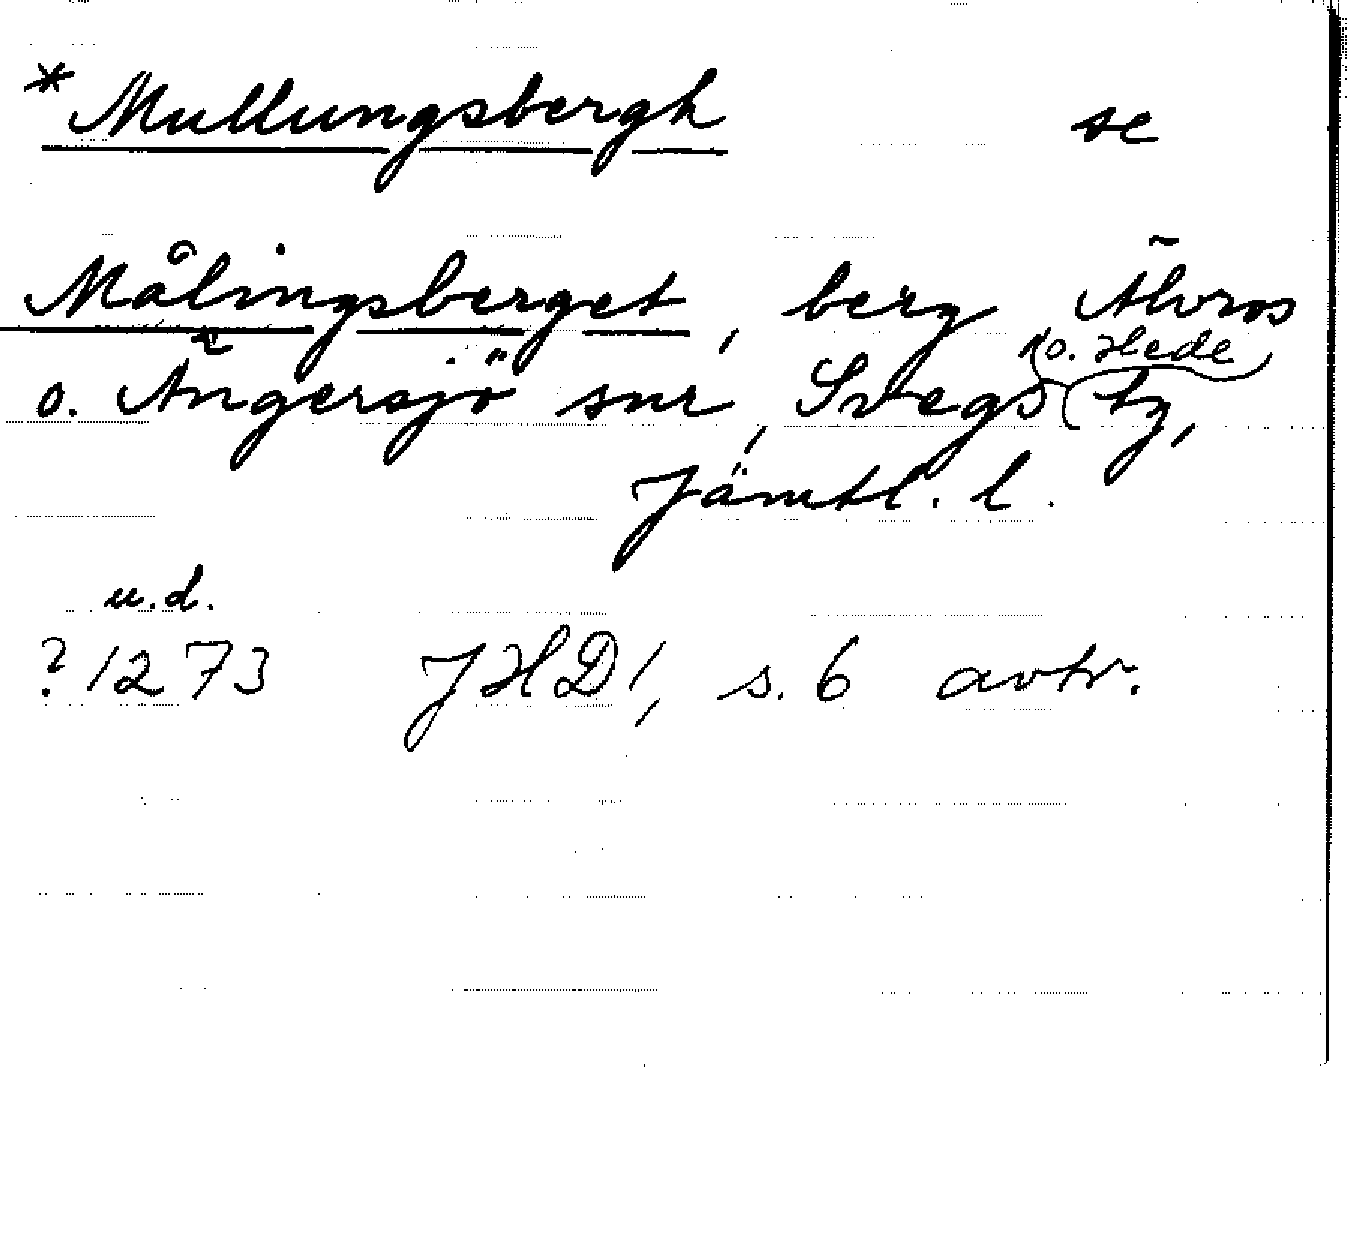 *Mullungsbergh se
Målingsberget, berg Älvros
o. Ängersjö snr, Svegs (o. Hede) tg,
Jämtl. l.
u.d.
? 1273 JHD 1, s. 6 avtr.